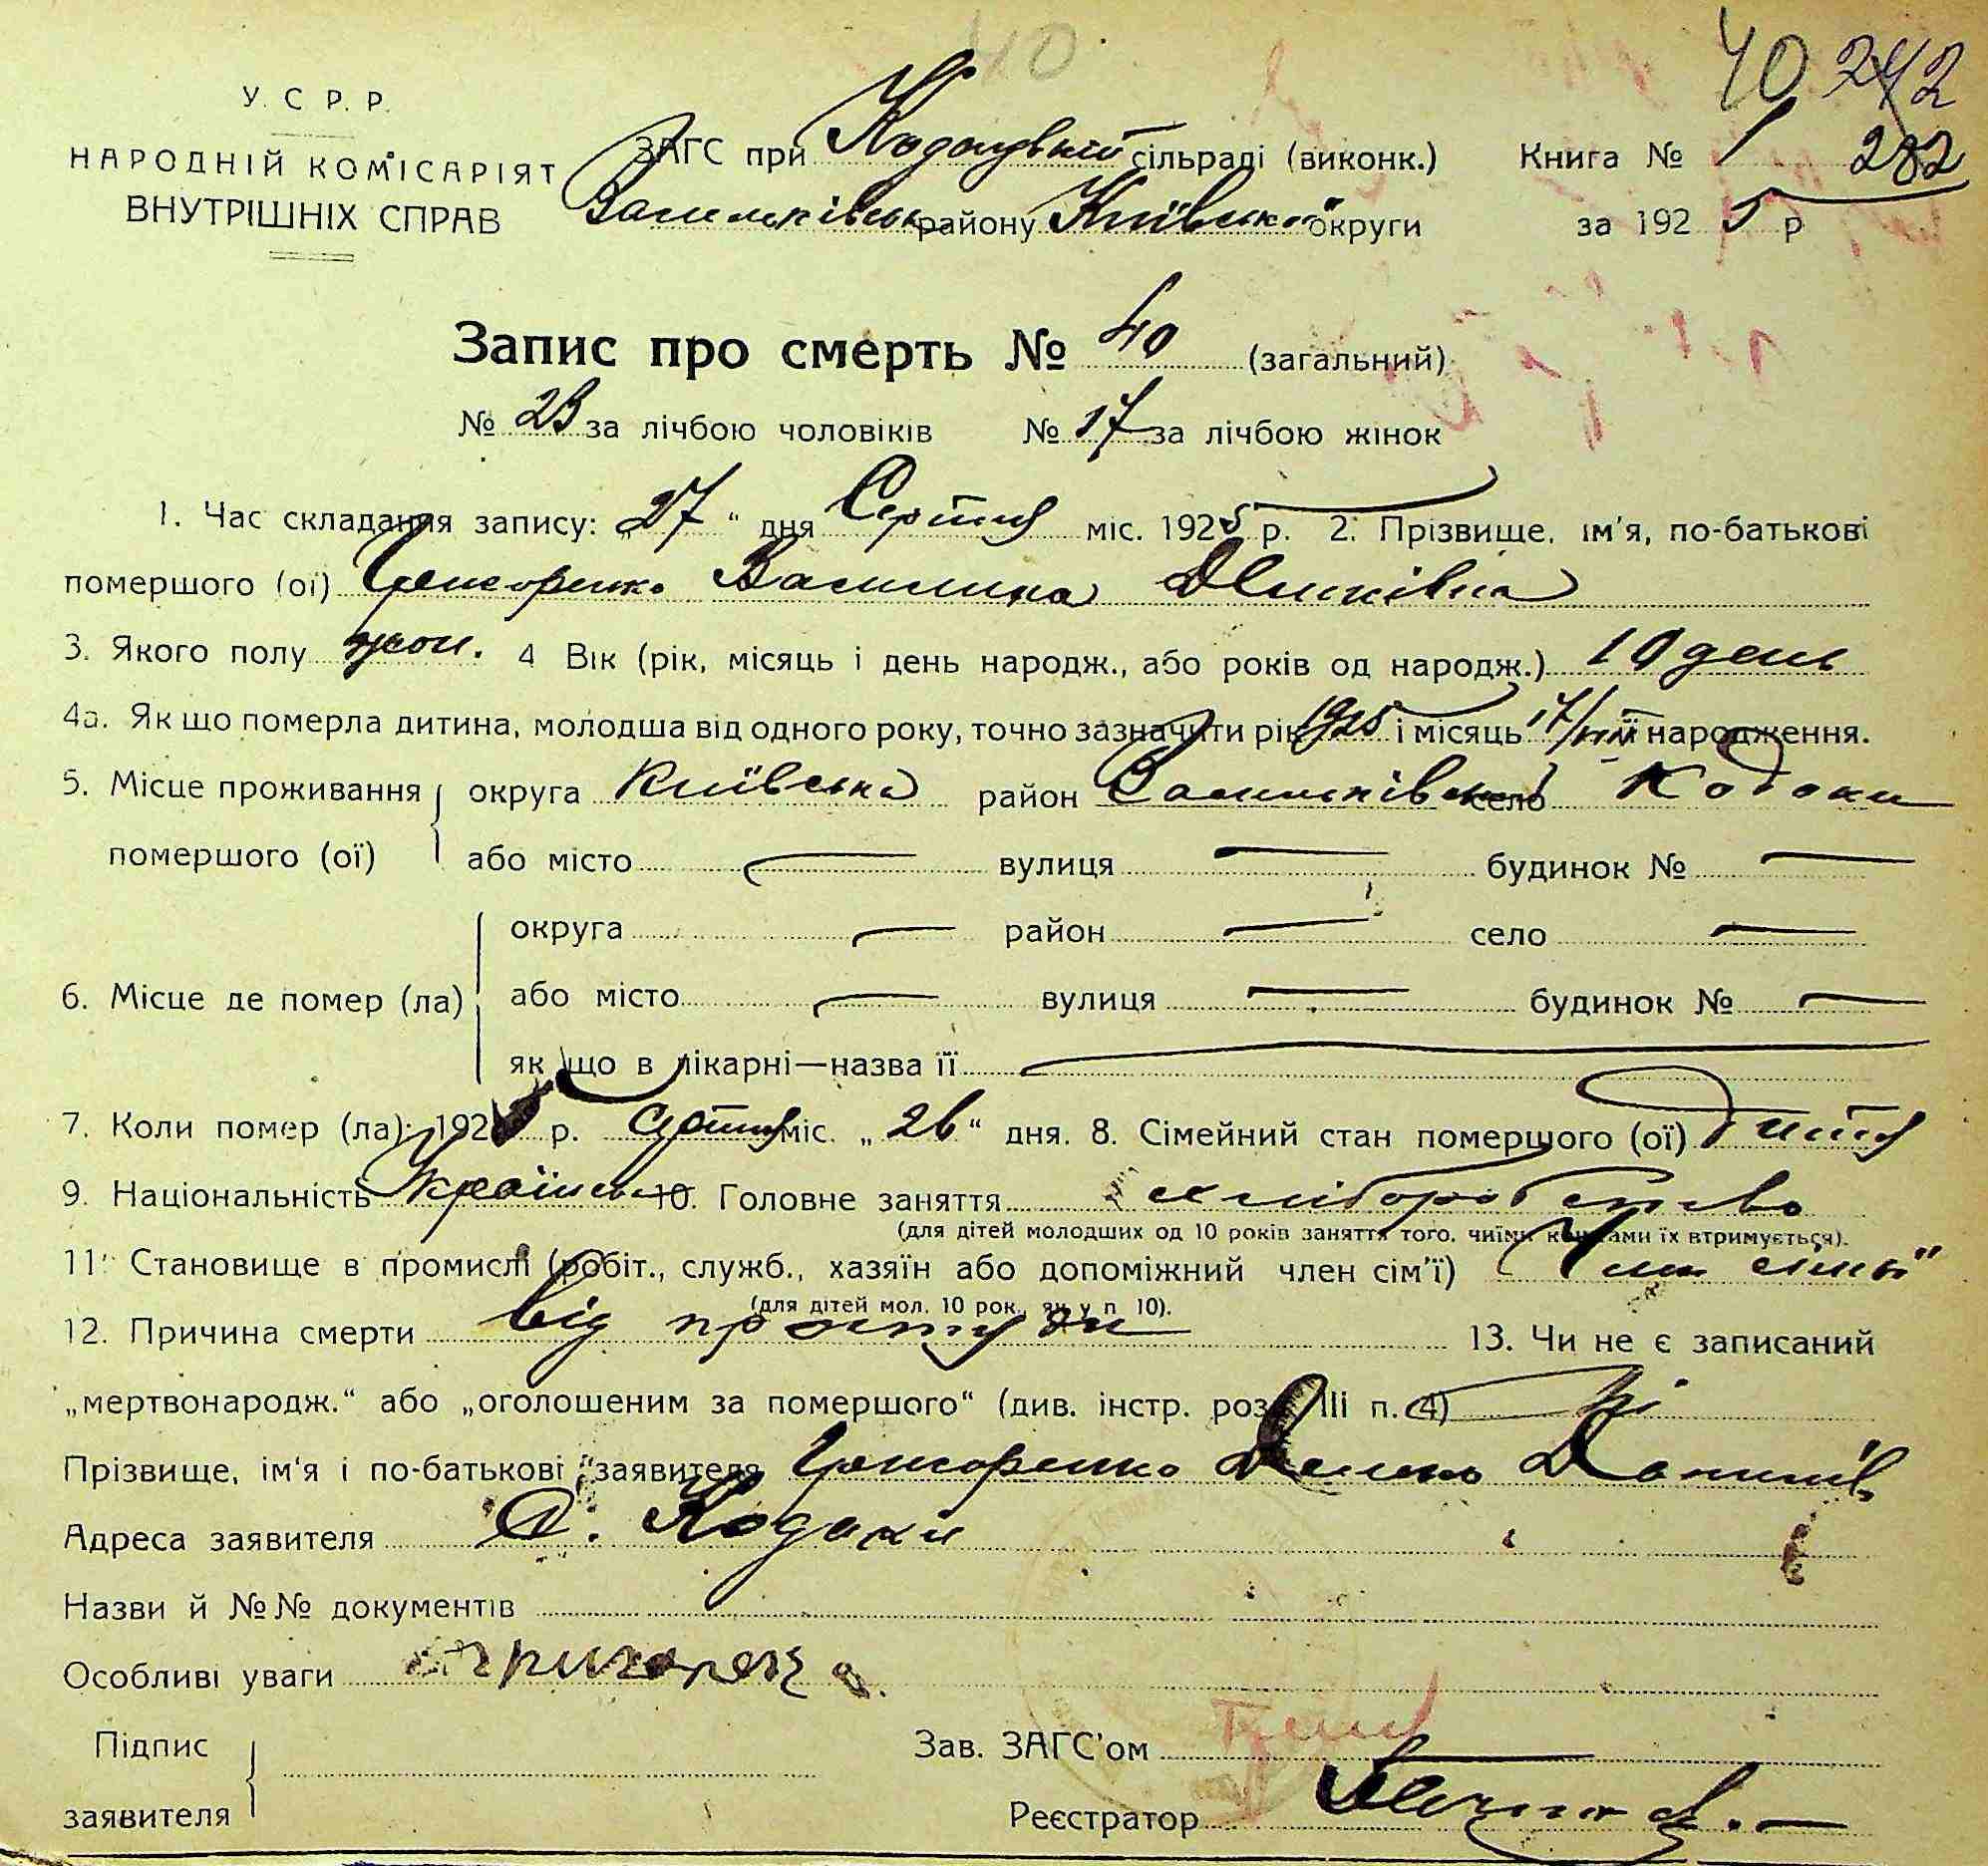 40
40 242
У. С Р. Р.
НАРОДНІЙ КОМІСАРІЯТ
ВНУТРІШНІХ СПРАВ
ЗАГС при Кодацькій сільраді (виконк.) Книга № 1 282
Васильківськ району Київської округи за 1925 р
Запис про смерть № 40 (загальний)
№ 23 за лічбою чоловіків № 17 за лічбою жінок
1. Час складання запису: „27“ дня Серпня міс. 1925 р. 2. Прізвище, ім'я, по-батькові
помершого (ої) Василина
3. Якого полу жон. 4 Вік (рік, місяць і день народж., або років од народж.) 10 день
4а. Як що померла дитина, молодша від одного року, точно зазначити рік 1925 і місяць 17/VIII її народження.
5. Місце проживання округа Київська район Васильківськ село Кодаки
помершого (ої) або місто — вулиця — будинок № —
округа — район — село —
6. Місце де помер (ла) або місто — вулиця — будинок № —
як що в лікарні—назва її —
7. Коли помер (ла): 1925 р. серпня міс. „26“ дня. 8. Сімейний стан помершого (ої) дитя
9. Національність Україн 10. Головне заняття хліборобство
(для дітей молодших од 10 років заняття того, чиїми коштами їх втримується).
11. Становище в промислі (робіт., служб., хазяїн або допоміжний член сім'ї) Член сімьї
(для дітей мол. 10 рок., як у п 10).
12. Причина смерти від простуди 13. Чи не є записаний
„мертвонародж.“ або „оголошеним за помершого“ (див. інстр. розд. III п. 4) Ні
Прізвище, ім'я і по-батькові заявителя
Адреса заявителя С. Кодаки
Назви й №№ документів
Особливі уваги
Підпис
заявителя
Зав. ЗАГС'ом
Реєстратор